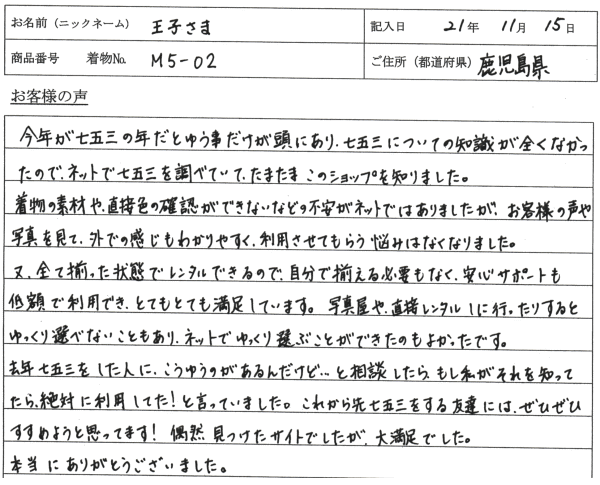 お名前（ニックネーム） 王子さま 記入日 21年 11月 15日
商品番号 着物No. M5-02 ご住所（都道府県） 鹿児島県
お客様の声
今年が七五三の年だとゆう事だけが頭にあり、七五三についての知識が全くなかっ
たので、ネットで七五三を調べていて、たまたまこのショップを知りました。
着物の素材や、直接色の確認ができないなどの不安がネットではありましたが、お客様の声や
写真を見て、外での感じもわかりやすく、利用させてもらう悩みはなくなりました。
又、全て揃った状態でレンタルできるので、自分で揃える必要もなく、安心サポートも
低額で利用でき、とてもとても満足しています。写真屋や、直接レンタルしに行ったりすると
ゆっくり選べないこともあり、ネットでゆっくり選ぶことができたのもよかったです。
去年七五三をした人に、こうゆうのがあるんだけど…と相談したら、もし私がそれを知って
たら、絶対に利用してた！と言っていました。これから先七五三をする友達には、ぜひぜひ
すすめようと思ってます！偶然見つけたサイトでしたが、大満足でした。
本当にありがとうございました。